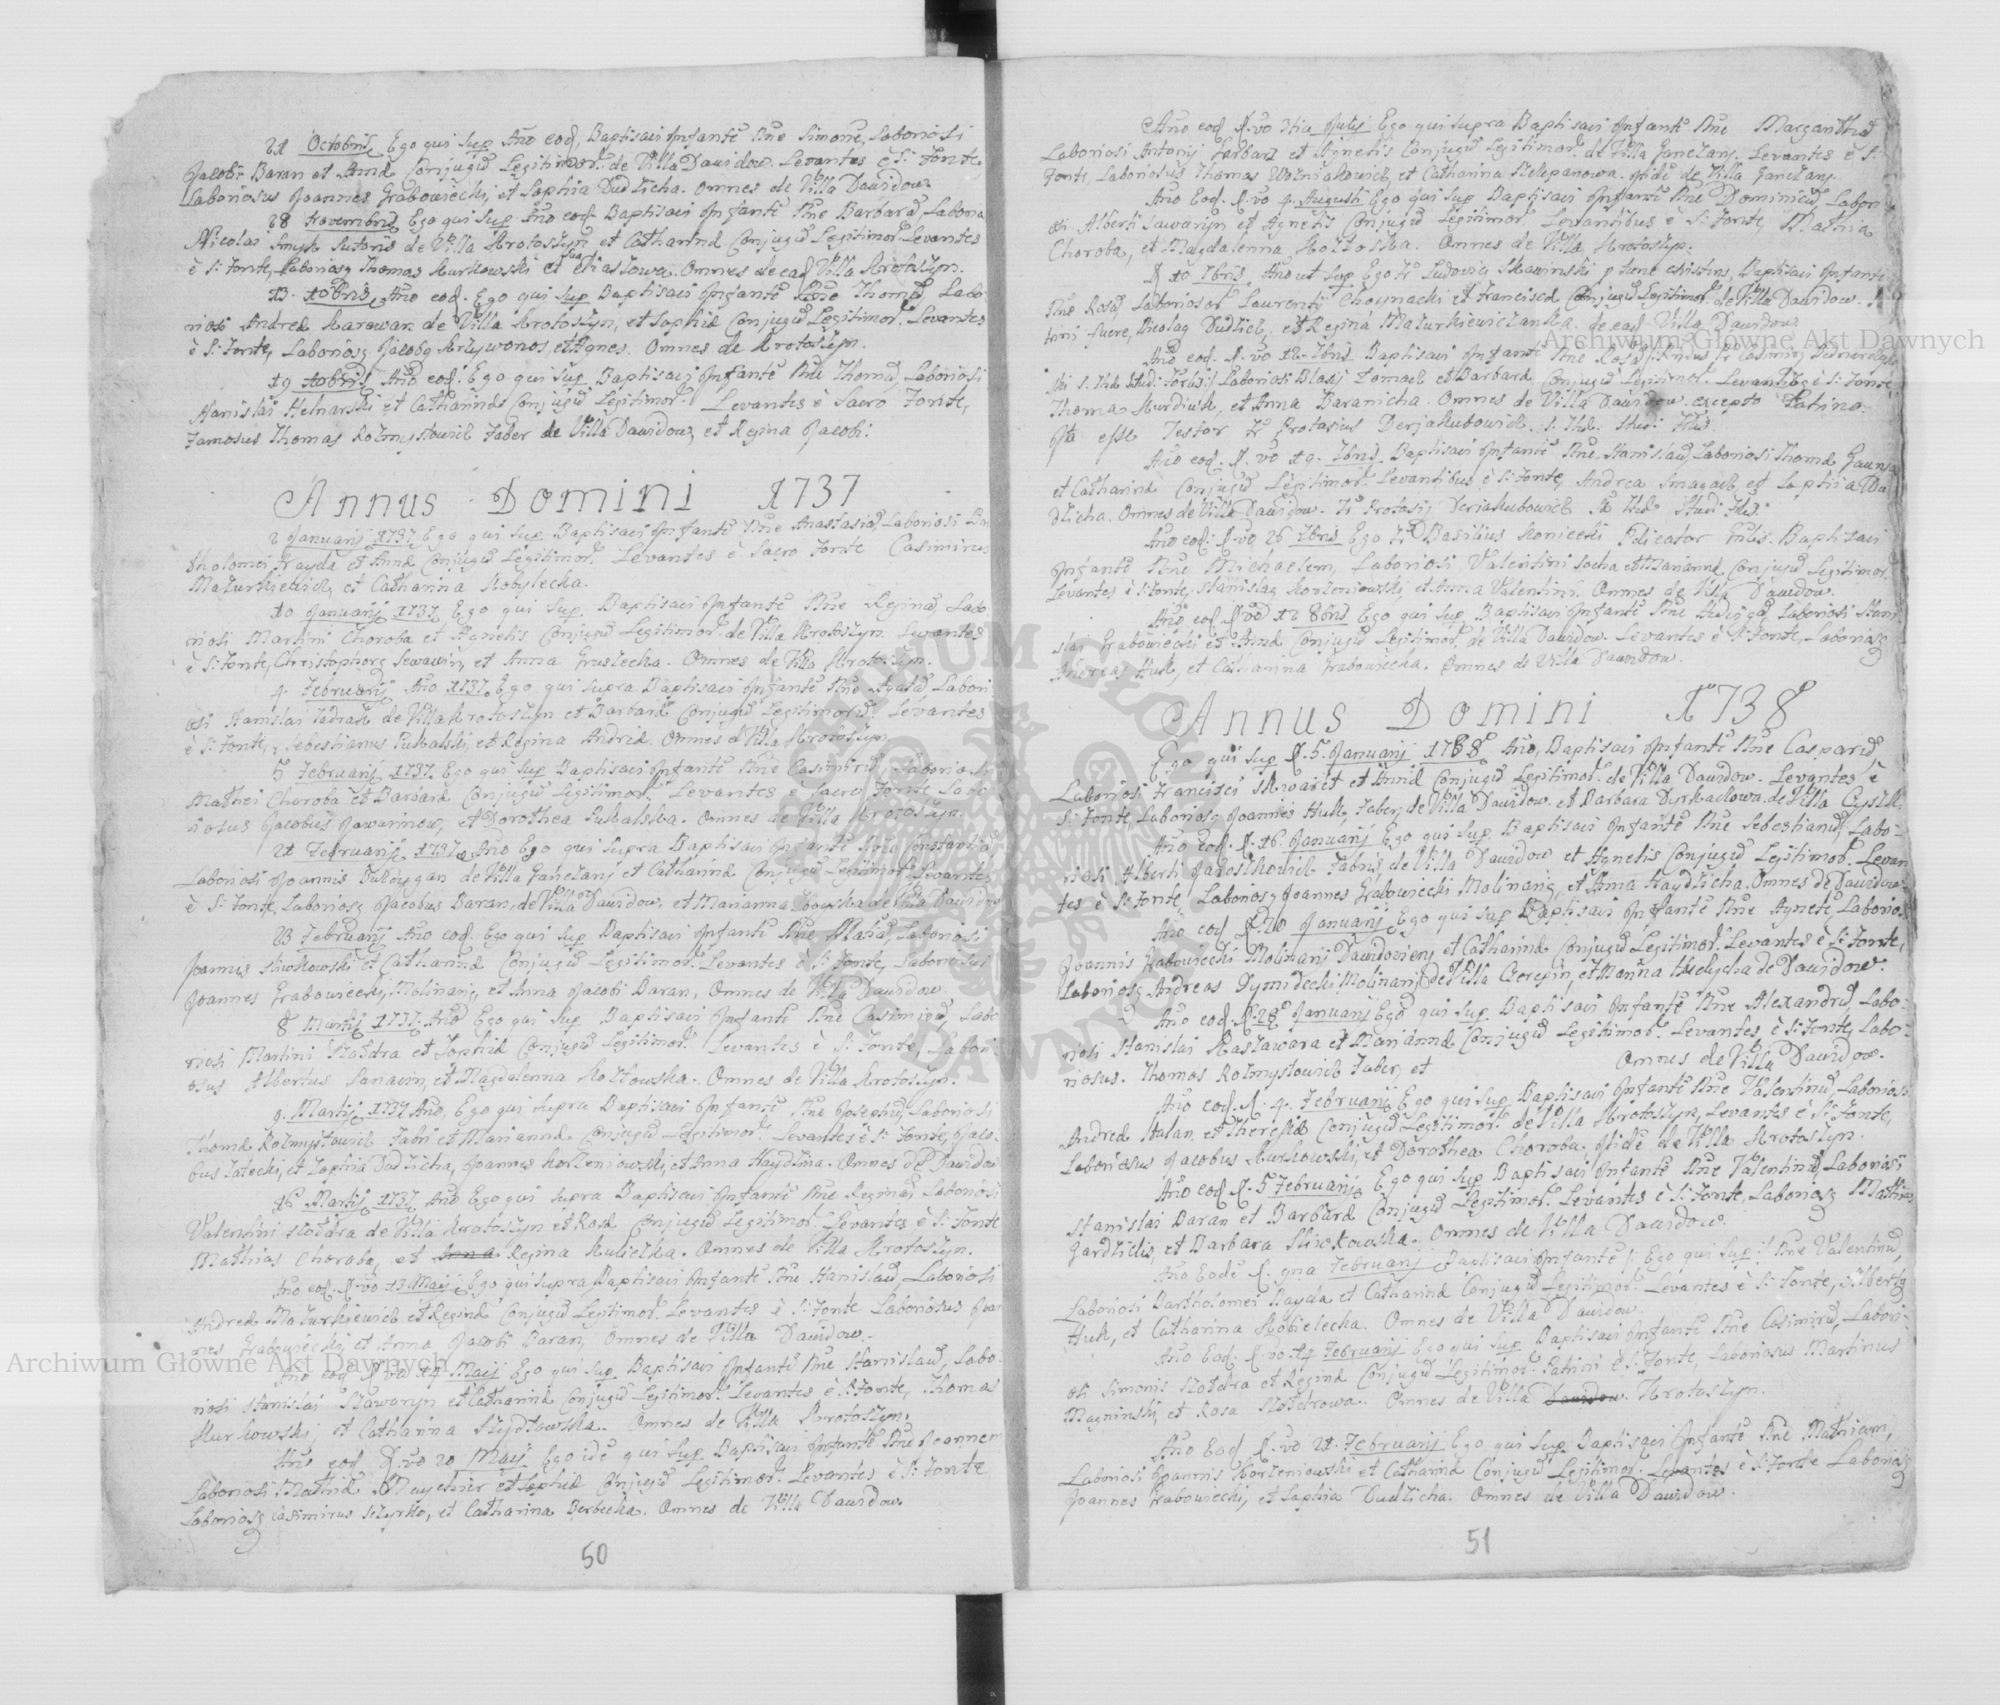 21 Octobris Ego qui sup Año eod, Baptisavi Infantē Nñe Simonē, Laboriosi
Jacobi Baran et Annæ Conjugū Legitimor. de Villa Davidow. Levantes è S: Fonte
Laboriosus Joannes Grabowiecki, et Sophia Dudzicha. Omnes de Villa Davidow.
28 Novembris Ego qui sup Año eod. Baptisavi Infantē Nñe Barbarā, Laborio
Nicolai Smyk Sutoris de Villa Krotoszyn et Catharinæ Conjugū Legitimor. Levantes
è S: Fonte, Laborios9 Thomas Kurkowski et Eliaszowa. Omnes de ead Villa Krotoszyn.
13. Xobris, Año eod. Ego qui sup Baptisavi Infantē Nñe Thomā, Labo
riosi Andreæ Karawan de Villa Krotoszyn, et Sophiæ Conjugū Legitimor. Levantes
è S: Fonte, Laborios9 Jacob9 Krzywonos, et Agnes. Omnes de Krotoszyn.
19 Xobris Año eod: Ego qui sup Baptisavi Infantē Nñe Thomā, Laboriosi
Stanislai Helnarski et Catharinæ Conjugū Legitimor. Levantes è Sacro Fonte,
Famosus Thomas Rozmysłowicz Faber de Villa Davidow, et Regina Jacobi:
Annus Domini 1737
2 Januarij 1737 Ego qui sup. Baptisavi Infantē Nñe Anastasiā, Laboriosi Bar
tholomei Hayda et Annæ Conjugū Legitimor. Levantes è Sacro Fonte Casimirus
Mazurkiewicz, et Catharina Kobylecka.
10 Januarij 1737 Ego qui sup. Baptisavi Infantē Nñe Reginā, Labo
riosi Martini Choroba et Agnetis Conjugū Legitimor. de Villa Krotoszyn. Levantes
è S: Fonte, Christophor9 Sewawin, et Anna Gruszecka. Omnes de Villa Krotoszyn.
4. Februarij Año 1737. Ego qui supra Baptisavi Infantē Nñe Agatā, Labori
osi Stanislai de Villa Krotoszyn et Barbaræ Conjugū Legitimorū. Levantes
è S: Fonte, Sebestianus Pukalski, et Regina Andreæ. Omnes d Villa Krotoszyn.
5 Februarij 1737. Ego qui sup Baptisavi Infantē Nñe Casimirū, Laboriosi
Mathei Choroba et Barbaræ Conjugū Legitimor. Levantes è Sacro Fonte Labo
riosus Jacobus Jawarinow, et Dorothea Pukalska. Omnes de Villa Krotoszyn.
21 Februarij 1737. Año Ego qui supra Baptisavi Infantē Nñe Constantiā
Laboriosi Joannis de Villa Ganczary et Catharinæ Conjugū Legitimor. Levantes
è S: Fonte, Laborios9 Jacobus Baran, de Villa Davidow, et Marianna de Villa Davidow
23 Februarij Año eod. Ego qui sup Baptisavi Infantē Nñe Mathiā, Laboriosi
Joannis Sliwkowski et Catharinæ Conjugū Legitimor. Levantes è S: Fonte, Laboriosus
Joannes Grabowiecki, Molinari9, et Anna Jacobi Baran, Omnes de Villa Davidow.
8 Martij 1737. Año Ego qui sup Baptisavi Infantē Nñe Casimirū, Labo
riosi Martini Szczodra et Sophiæ Conjugū Legitimor. Levantes è S: Fonte, Labori
osus Albertus Sanavin, et Magdalenna Kozłowska. Omnes de Villa Krotoszyn.
9. Martij 1737 Año, Ego qui supra Baptisavi Infantē Nñe Josephū, Laboriosi
Thomæ Rozmysłowicz Fabri et Mariannæ Conjugū Legitimor. Levantes è S: Fonte, Jaco
bus Zatecki, et Sophia Dudzicha, Joannes Korzeniowski, et Anna Haydzina. Omnes de Davidow
16 Martij 1737 Año Ego qui supra Baptisavi Infantē Nñe Reginā, Laboriosi
Valentini Szczodra de Villa Krotoszyn et Rosæ Conjugū Legitimor. Levantes è S: Fonte
Mathias Choroba, et Anna Regina Kuliczka. Omnes de Villa Krotoszyn.
Año eod. D. vo 13 Maij Ego qui supra Baptisavi Infantē Nñe Stanislaū, Laboriosi
Andreæ Mazurkiewicz et Reginæ Conjugū Legitimor. Levantes è S: Fonte Laboriosus Joan
nes Grabowiecki, et Anna Jacobi Baran, Omnes de Villa Davidow.
Año eod D. vo 14 Maij Ego qui sup Baptisavi Infantē Nñe Stanislaū, Labo
riosi Stanislai Sawaryn et Catharinæ Conjugū Legitimor. Levantes è S: Fonte, Thomas
Kurkowski et Catharina Szydłowska. Omnes de Villa Krotoszyn.
Año eod D. vo 20 Maij Ego idē qui sup Baptisavi Infantē Nñe Joannem
Laboriosi Mathiæ et Sophiæ Conjugū Legitimor. Levantes è S: Fonte
Laborios9 Casimirus Sczyrko, et Catharina Berbecka. Omnes de Villa Davidow
50
Año eod. D. vo 3tia Julij Ego qui supra Baptisavi Infantē Nñe Margarithā
Laboriosi Antonij Harbarz et Agnetis Conjugū Legitimor. de Villa Ganczary. Levantes è S:
Fonte, Laboriosus Thomas Wozniakowicz, et Catharina Szczepanowa. Ibidē de Villa Ganczary.
Año Eod. D. vo 4. Augusti Ego qui sup Baptisavi Infantē Nñe Dominicū, Labori
osi Alberti Sawaryn et Agnetis Conjugū Legitimor. Levantibus è S: Fonte, Mathia
Choroba, et Magdalenna Kozłoska. Omnes de Villa Krotoszyn.
D 10 7bris Año ut sup Ego Fr Ludovic9 Skawinski p tunc existens, Baptisavi Infantē
Nñe Rosā Laboriosor Laurentij Choynacki et Franciscæ Conjugū Legitimor. de Villa Davidow.
trini fuere, Nicola9 Dudzicz, et Regina Mazurkiewiczanka. de ead. Villa Davidow.
Año eod. D. vo 12. 7bris. Baptisavi Infantē Nñe Rosā
Laboriosi Blasij Tomacz et Barbaræ Conjugū Legitimor. Levantib9 è S: Fonte,
Thoma Kurdiuk, et Anna Baranicha. Omnes de Villa Davidow. excepto Patrino.
Ita esse Testor Fr Protasius Derjakubowicz. S. Th. Studi:
Año eod. D. vo 19. 7bris Baptisavi Infantē Nñe Stanislaū, Laboriosi Thomæ
et Catharinæ Conjugū Legitimor. Levantibus è S: Fonte, Andrea Smagacz, et Sophia Du
dzicha. Omnes de Villa Davidow. Fr Protasij Derjakubowicz
Año eod: D. vo 26 7bris Ego Fr Basilius Koniecki Pdicator Baptisavi
Infantē Nñe Michaelem, Laboriosi Valentini Socha et Mariannæ Conjugū Legitimor.
Levantes è S: Fonte, Stanisla9 Korzeniowski, et Anna Valentini. Omnes de Villa Davidow.
Año eod D vo 12 8bris Ego qui sup Baptisavi Infantē Nñe Hedvigā, Laboriosi Stani
slai Grabowiecki et Annæ Conjugū Legitimor. de Villa Davidow. Levantes è S: Fonte, Laborios9
Andreas Huk, et Catharina Grabowiecka. Omnes de Villa Davidow.
Annus Domini 1738
Ego qui sup D. 5. Januarij 1738 Año, Baptisavi Infantē Nñe Casparū,
Laboriosi Francisci Skwaret et Annæ Conjugū Legitimor. de Villa Davidow. Levantes è
S: Fonte, Laborios9 Joannes Huk, Faber, de Villa Davidow. et Barbara Dyrkaczowa, de Villa
Año eod. D. 16. Januarij Ego qui sup. Baptisavi Infantē Nñe Sebestianū, Labo-
riosi Alberti Jaroszkowicz Fabri, de Villa Davidow et Agnetis Conjugū Legitimor. Levan
tes è S: Fonte, Laborios9 Joannes Grabowiecki Molinari9, et Anna Haydzicha. Omnes de Davidow.
Año eod D. 20 Januarij Ego qui sup Baptisavi Infantē Nñe Agnetē, Laborios
Joannis Grabowiecki Molinarij Davidovien, et Catharinæ Conjugū Legitimor. Levantes è S: Fonte,
Laborios9 Andreas Dymidecki Molinari9 de Villa Czerepin, et Mariña de Davidow.
Año eod. D. 28 Januarij Ego qui sup Baptisavi Infantē Nñe Alexandrū Labo-
riosi Stanislai Kastawara et Mariannæ Conjugū Legitimor. Levantes è S: Fonte, Labo-
riosus. Thomas Rozmysłowicz Faber, et Omnes de Villa Davidow.
Año eod. D. 4. Februarij Ego qui sup Baptisavi Infantē Nñe Valentinū, Laboriosi
Andreæ Stalan et Theresiæ Conjugū Legitimor. de Villa Krotoszyn, Levantes è S: Fonte,
Laboriosus Jacobus Kurkowski, et Dorothea Choroba. Ibidē de Villa Krotoszyn.
Año eod D. 5 Februarij. Ego qui sup Baptisavi Infantē Nñe Valentinū, Laboriosi
Stanislai Baran et Barbaræ Conjugū Legitimor. Levantes è S: Fonte, Laborios9 Mathias
Gardziclis, et Barbara Sliwkowska. Omnes de Villa Davidow.
Año Eodē D. 9na Februarij Baptisavi Infantē /: Ego qui sup :/ Nñe Valentinū,
Laboriosi Bartholomei Hayda et Catharinæ Conjugū Legitimor. Levantes è S: Fonte, Albert9
Huk, et Catharina Kobielecka. Omnes de Villa Davidow.
Año Eod D. vo 14 Februarij Ego qui sup Baptisavi Infantē Nñe Casimirū, Labori-
osi Simonis Szczodra et Reginæ Conjugū Legitimor. Patrini è S: Fonte, Laboriosus Martinus
Mazninski, et Rosa Szczodrowa. Omnes de Villa Davidow. Krotoszyn.
Año Eod D. vo 21. Februarij Ego qui sup Baptisavi Infantē Nñe Mathiam,
Laboriosi Joannis Korzeniowski et Catharinæ Conjugū Legitimor. Levantes è S: Fonte Laborios9
Joannes Grabowiecki, et Sophia Dudzicha. Omnes de Villa Davidow.
51
Archiwum Główne Akt Dawnych
Archiwum Główne Akt Dawnych